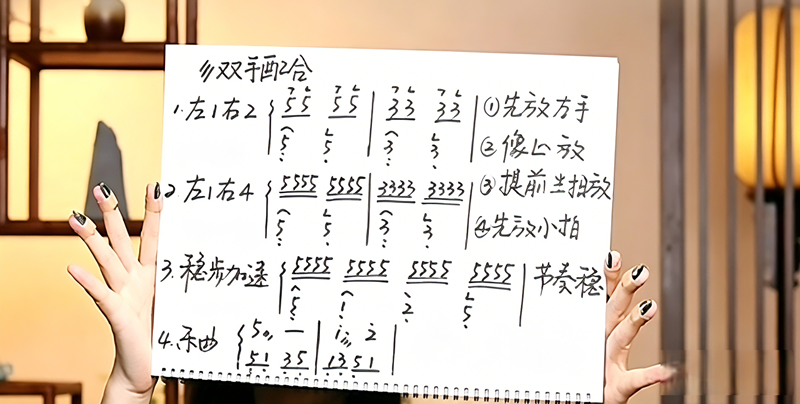 彡双手配合
1.左1右2 5 5 5 5 | 3 3 3 3 | ①先放方手
5 5 3 3 ②像 放
2 左1右4 5555 5555 | 3333 3333 | ③提前半拍放
5 5 3 3 ④先放小拍
3.稳步加速 5555 5555 5555 5555 | 节奏稳
5 1 2 5
4.乐曲 5 — | i 2 |
51 35 | 13 51 |